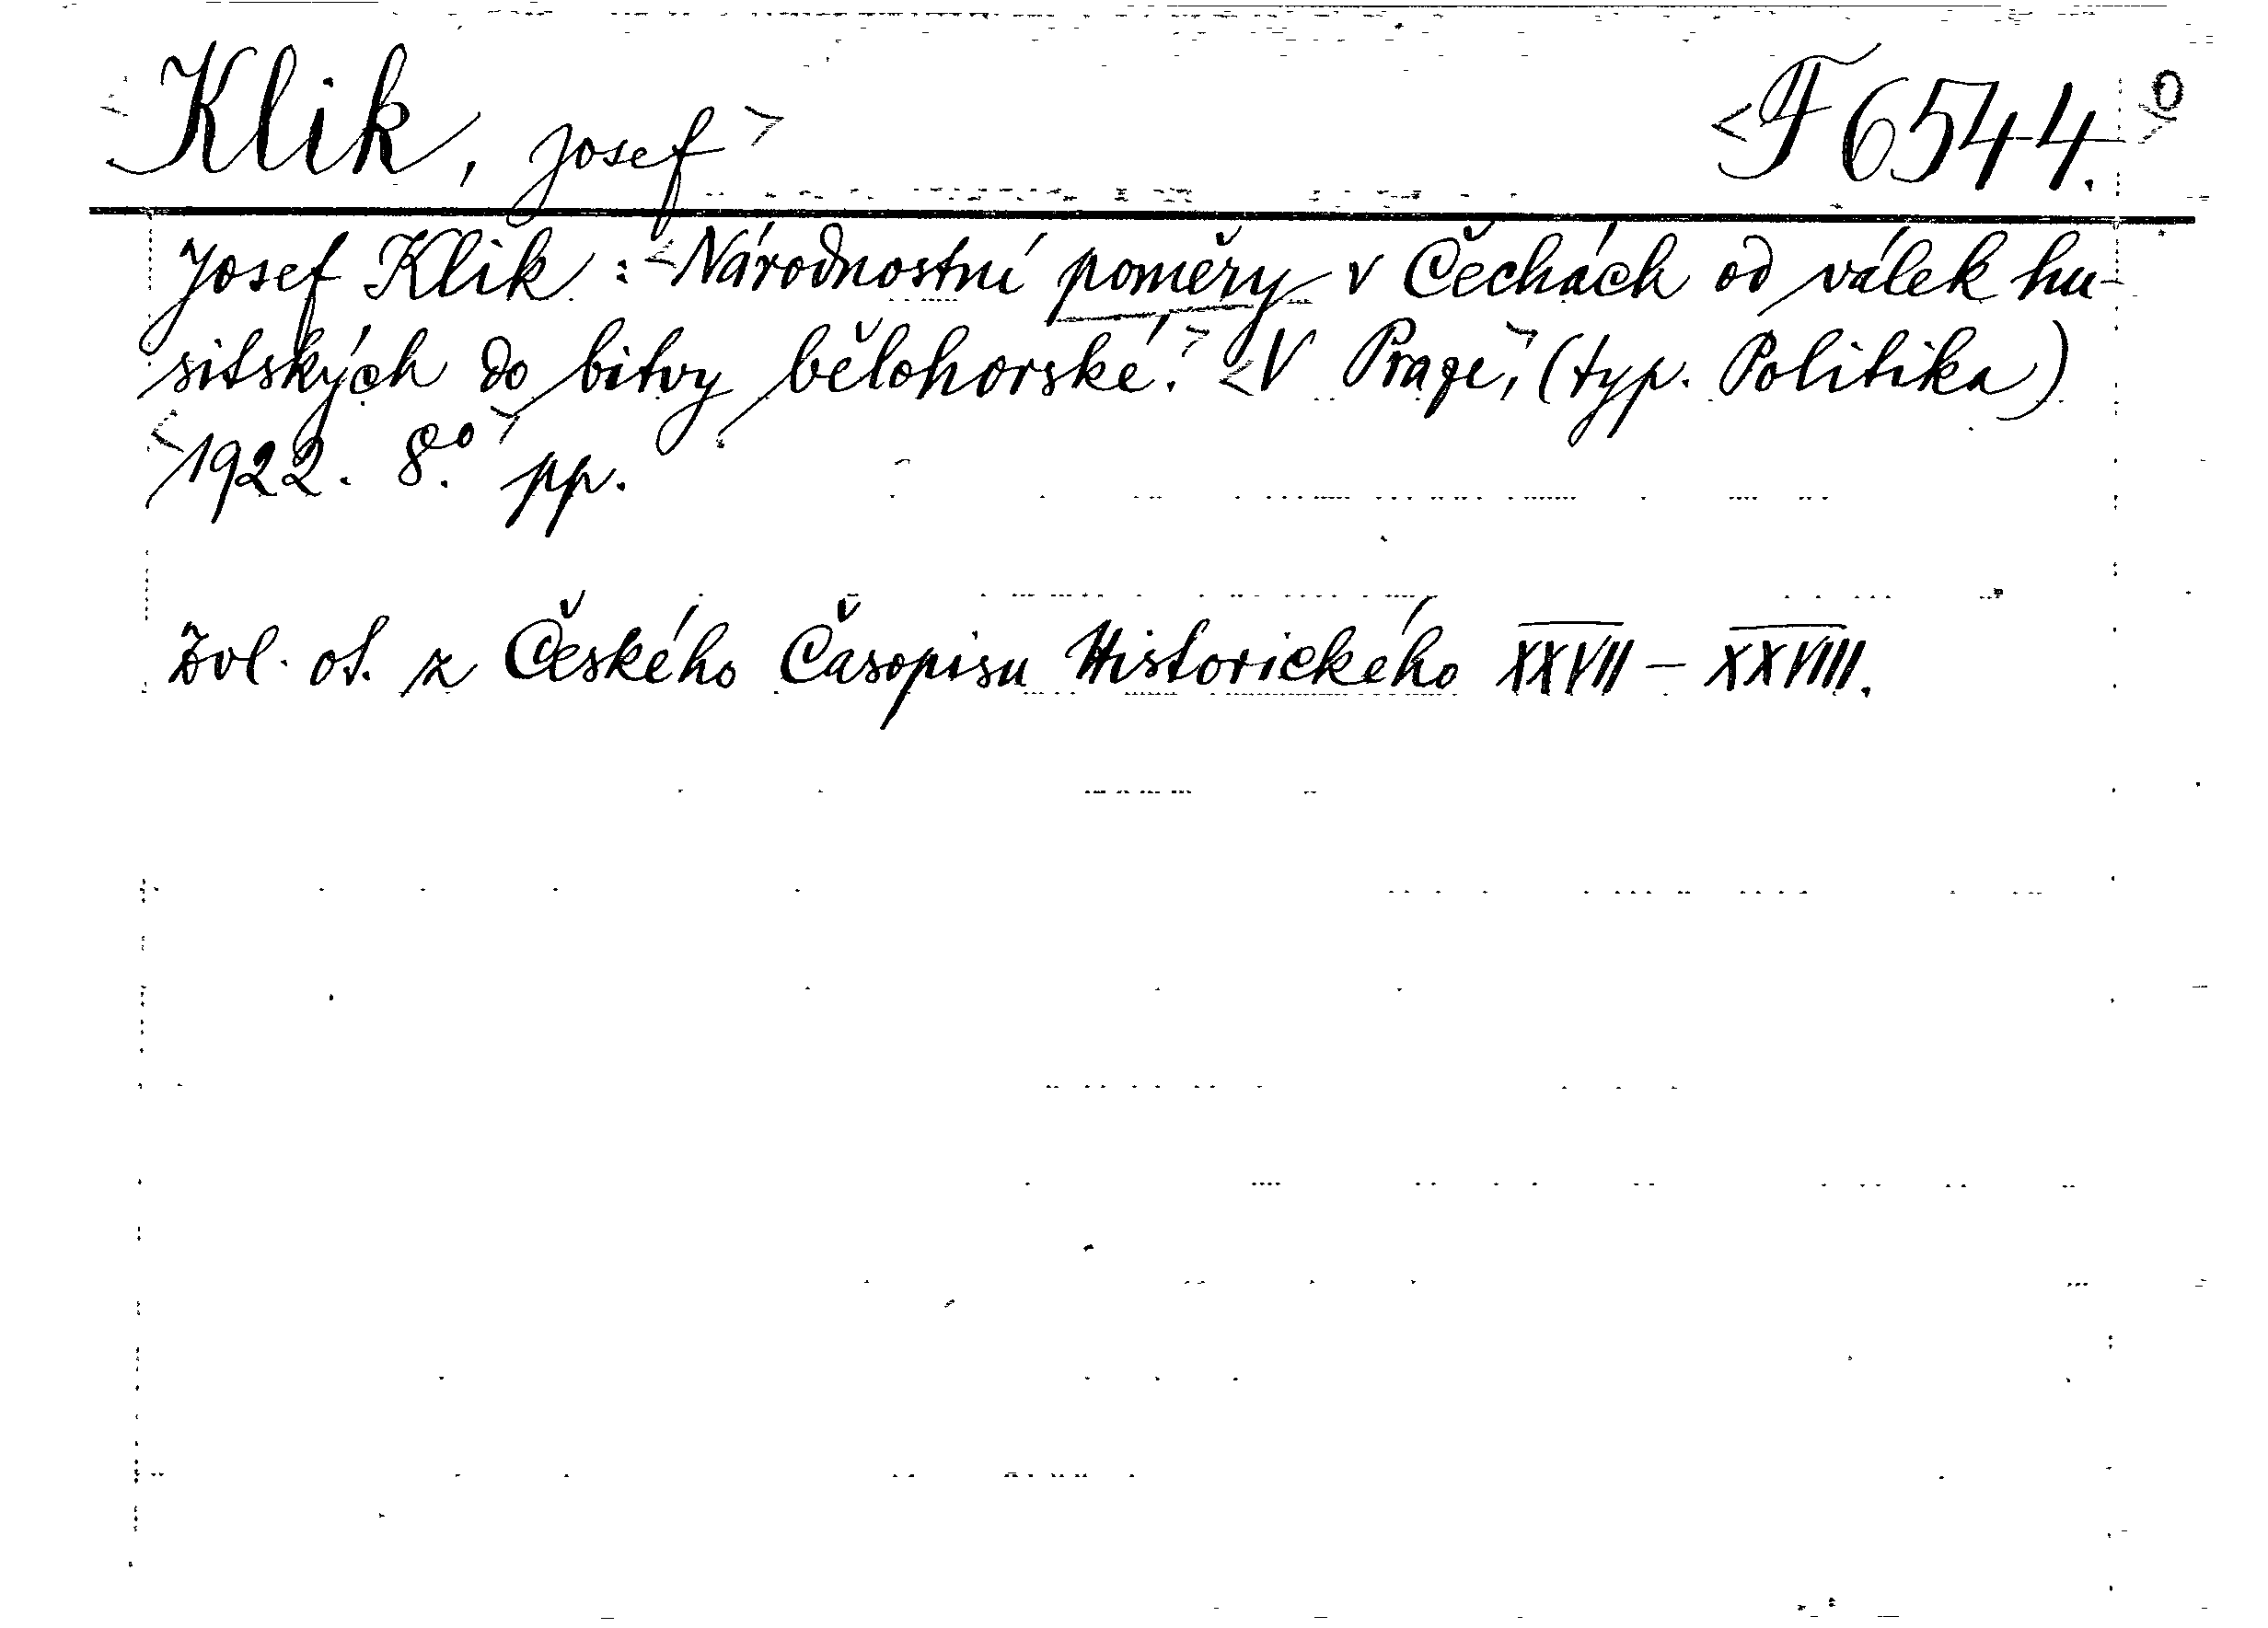 <Klik, Josef> <F 6544.>⁰
Josef Klik: <Národnostní poměry v Čechách od válek hu-
sitských do bitvy bělohorské.> <V Praze,> (typ. Politika)
<1922. 8.⁰> pp.
Zvl. ot. z Českého Časopisu Historického XXVII – XXVIII.